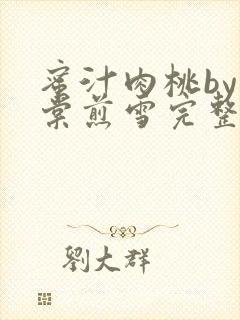 蜜汁肉桃by
棠煎雪完整
劉大群